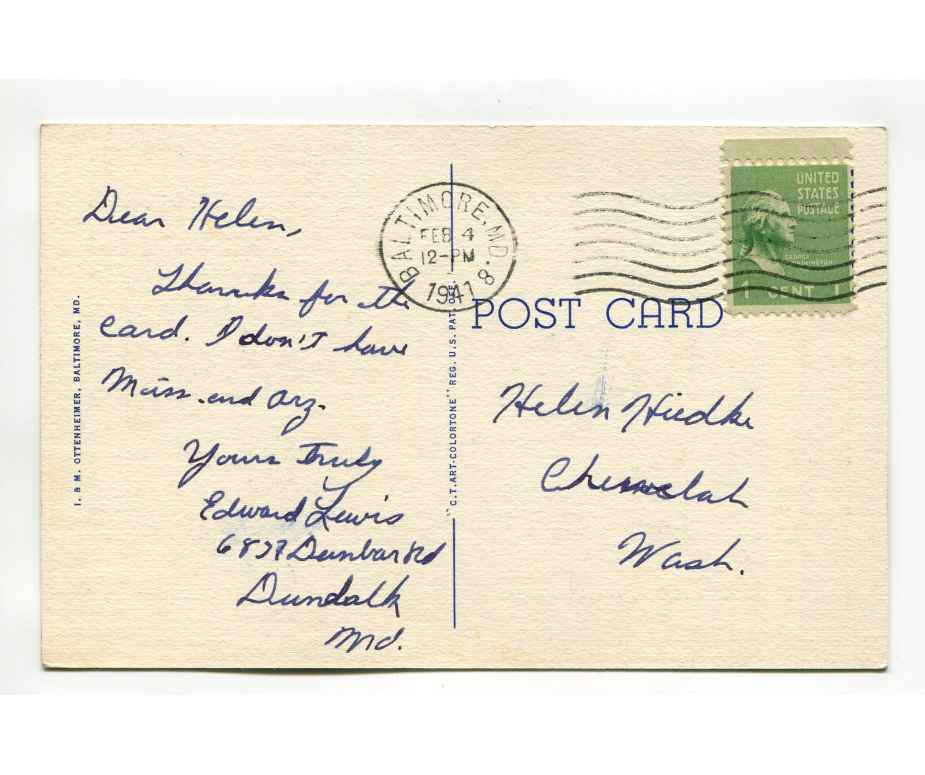 Dear Helen,
Thanks for the
card. I don't have
Miss. and Arz.
Yours Truly
Edward Lewis
Dunbar Rd
Dundalk
Md.
I. & M. OTTENHEIMER, BALTIMORE, MD.
"C.T. ART-COLORTONE" REG. U.S. PAT. OFF.
BALTIMORE, MD.
FEB 4
12-PM
1941
8
POST CARD
UNITED
STATES
POSTAGE
GEORGE
WASHINGTON
1 CENT 1
Helen
Wash.